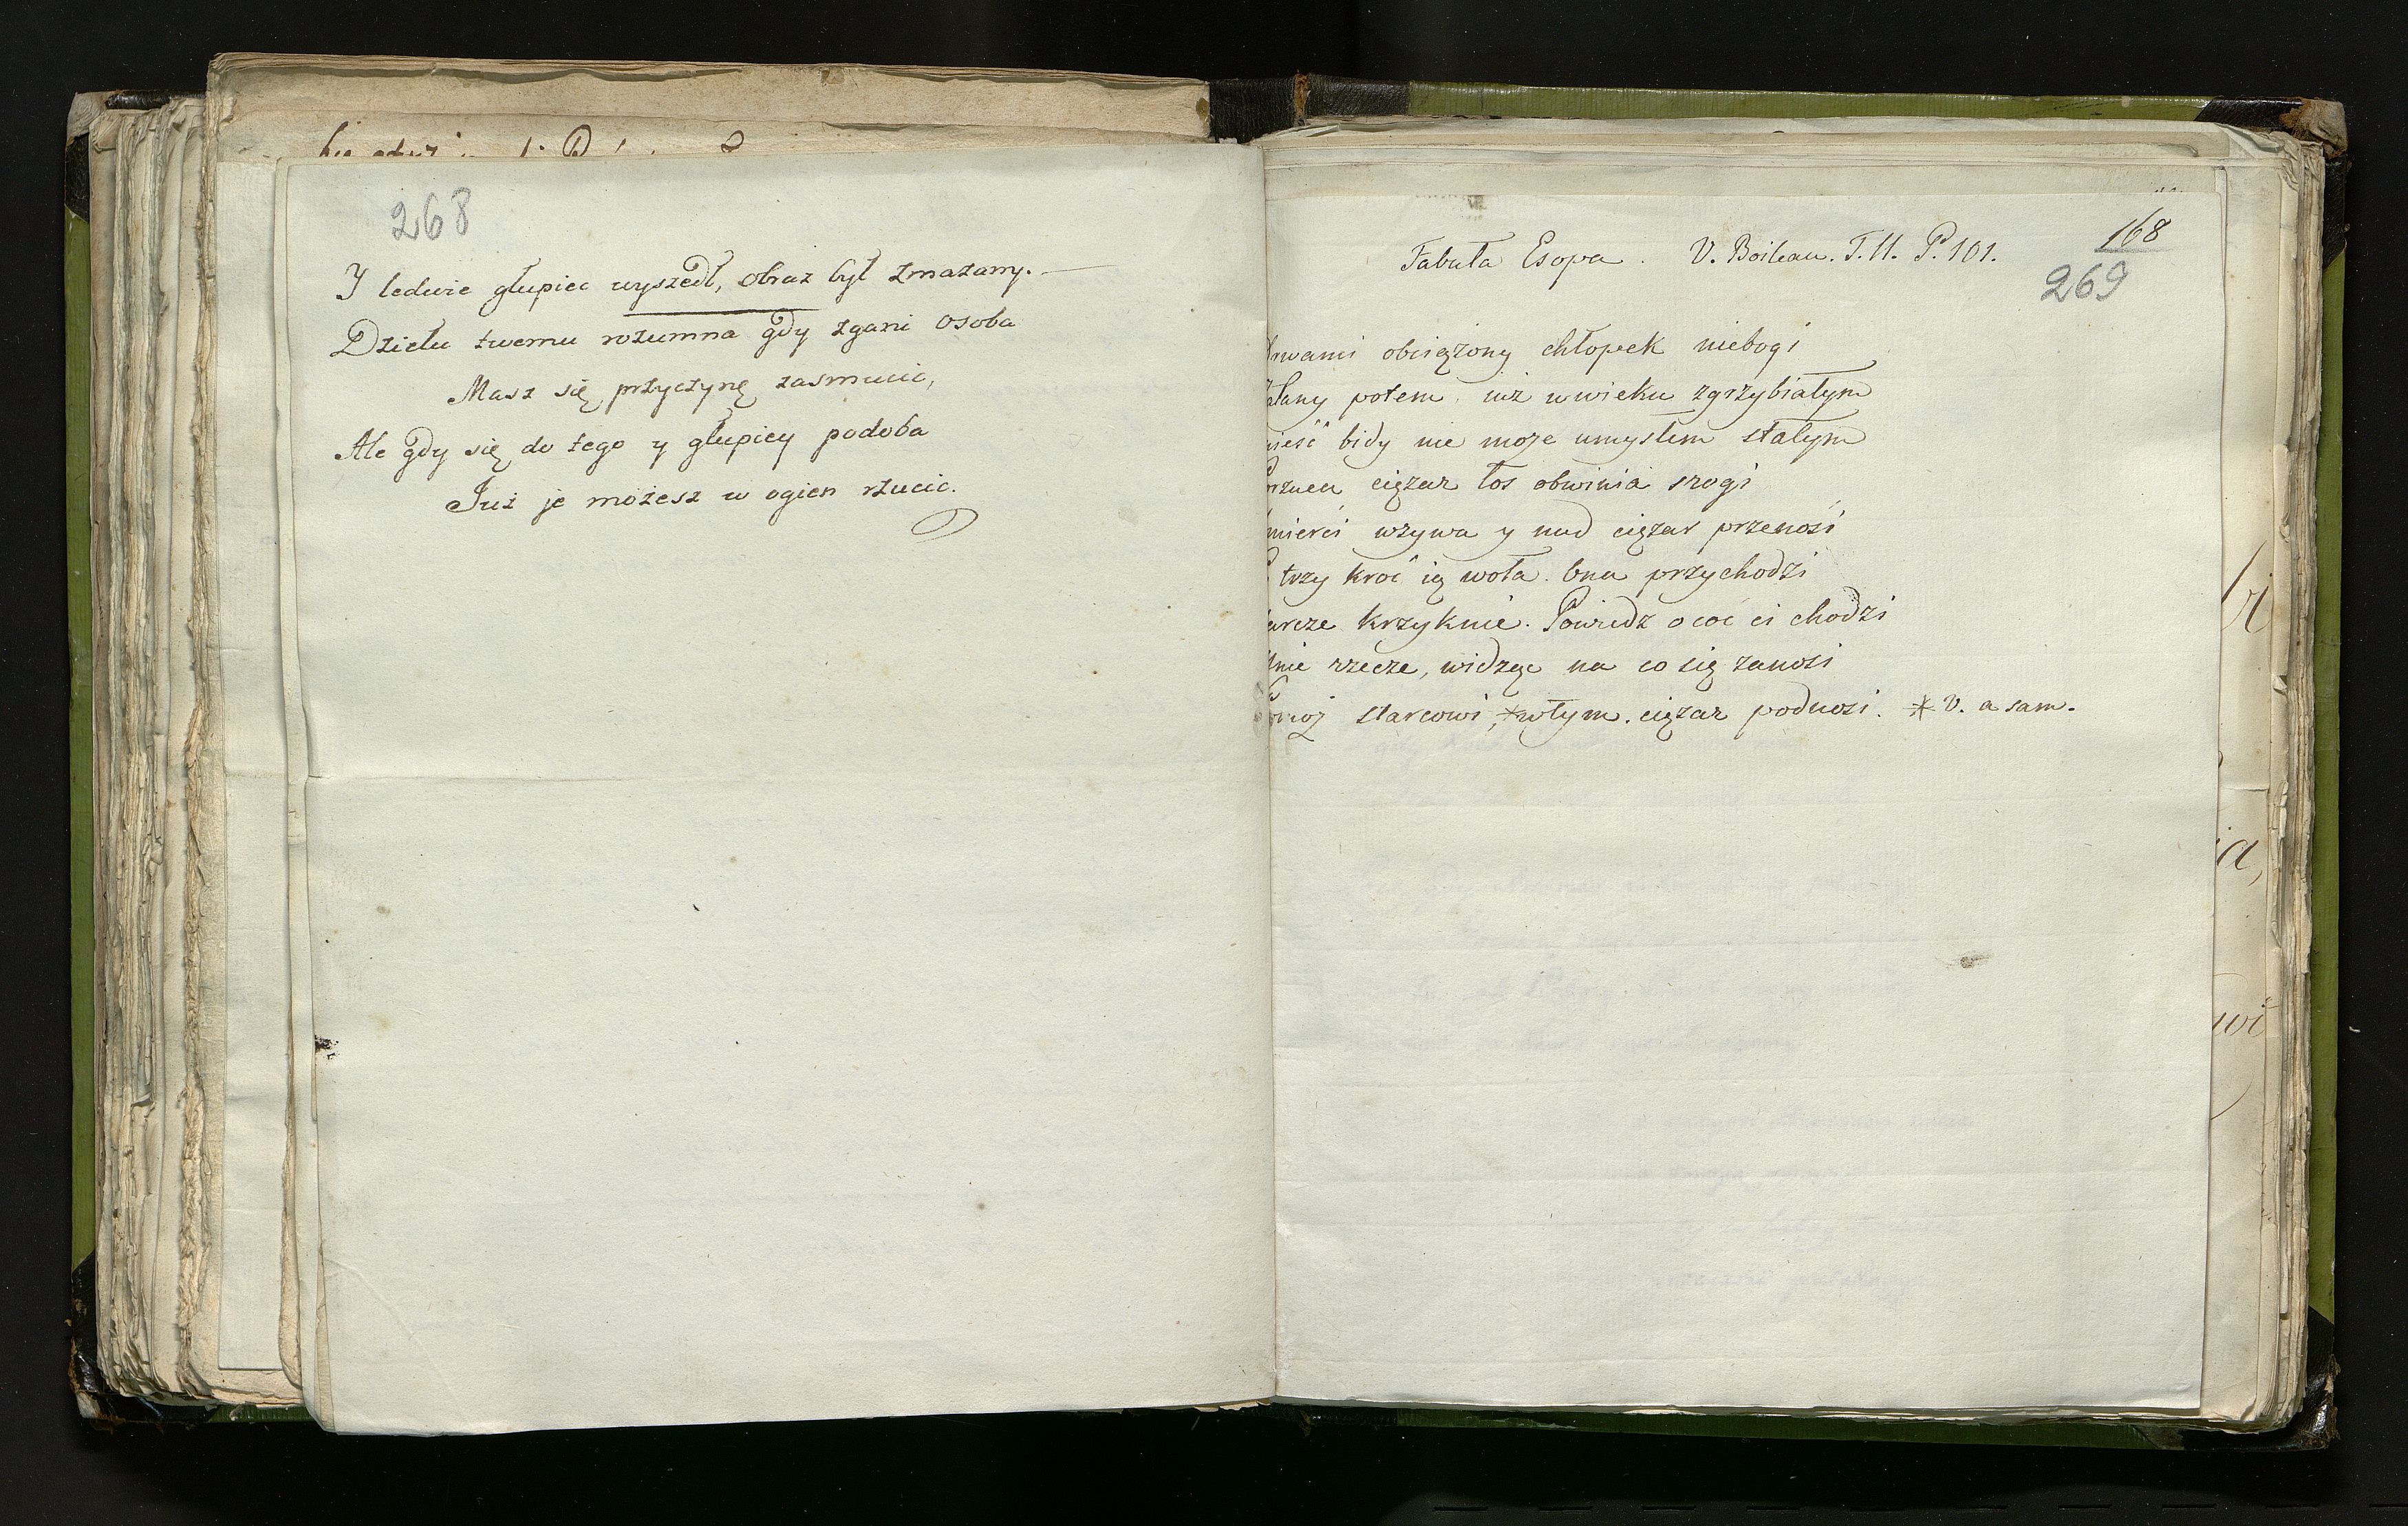 268
I ledwie głupiec wyszedł, obraz był zmazany. —
Dziełu twemu rozumna gdy zgani osoba
Masz się przyczynę zasmucic,
Ale gdy się do tego y głupiey podoba
Już je możesz w ogien rzucic.
168
Fabuła Esopa. V. Boileau. T. II. P. 101.
269
rwami obciążony chłopek niebogi
lany potem, iuż w wieku zgrzybiałym
nieść bidy nie może umysłem stałym
orzuca ciężar los obwinia srogi
mierci wzywa y nad ciężar przenosi
trzy kroć ią woła. Ona przychodzi
arcze krzyknie. Powiedz o coć ci chodzi
nie rzecze, widząc na co się zanosi
omoż starcowi, *w tym. ciężar podnosi. * V. a sam.